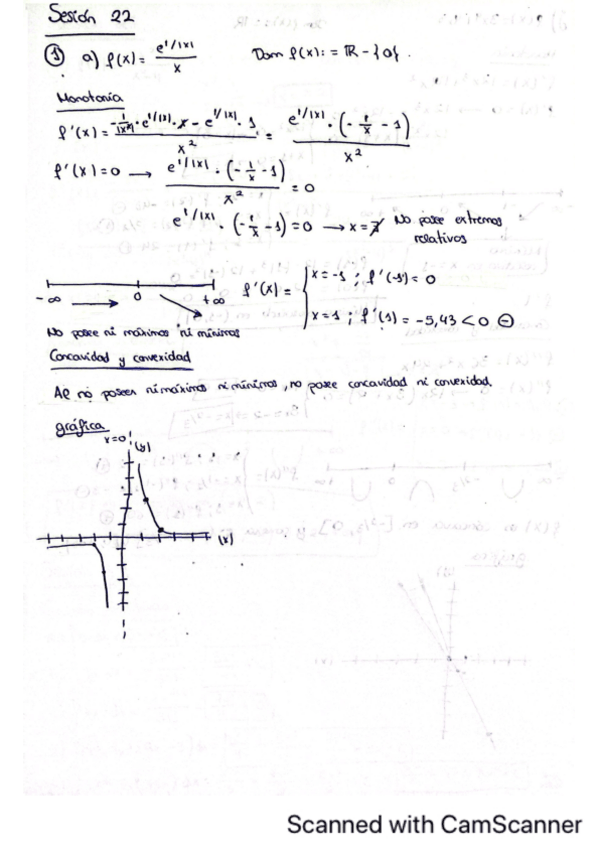 Sesión 22
① a) f(x) = e^1/|x| / x Dom f(x): = ℝ - {0}.
Monotonía
f'(x) = -1/|x²| · e^1/|x| · x - e^1/|x| · 1 / x² = e^1/|x| · (-1/x - 1) / x²
f'(x) = 0 → e^1/|x| · (-1/x - 1) / x² = 0
e^1/|x| · (-1/x - 1) = 0 → x = ∄ No posee extremos
relativos
-∞ 0 +∞ f'(x) = { x = -1 ; f'(-1) = 0
x = 1 ; f'(1) = -5,43 < 0 ⊖
No posee ni máximos ni mínimos
Concavidad y convexidad
Al no poseer ni máximos ni mínimos, no posee concavidad ni convexidad.
gráfica
x=0 (y)
(x)
Scanned with CamScanner